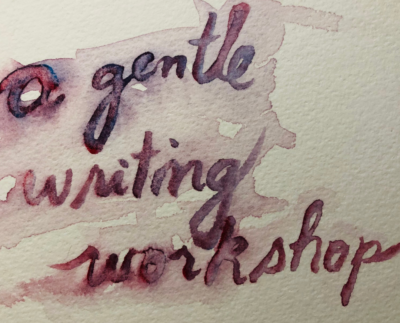 a gentle
writing
workshop